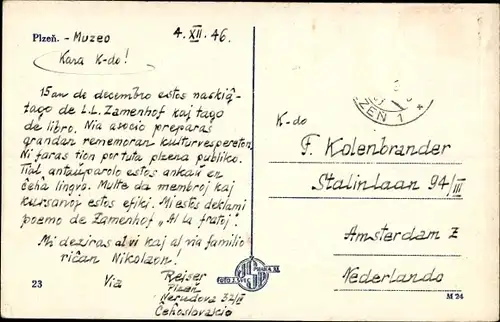 Plzeň. - Muzeo
4. XII. 46.
Kara K-do!
15an de decembro estos naskiĝ-
tago de L.L. Zamenhof kaj tago
de libro. Nia asocio preparas
grandan rememoran kulturvespereton.
Ni faras tion por tuta plzena publiko.
Tial antaŭparolo estos ankaŭ en
ĉeĥa lingvo. Multe da membroj kaj
kursanoj estos efiki. Mi estos deklami
poemo de Zamenhof „Al la fratoj".
Mi deziras al vi kaj al via familio
riĉan Nikolaon!
Via Rejser
Plzeň
Nerudova 32/II
Ĉeĥoslovakio
K-do
F. Kolenbrander
Stalinlaan 94/III
Amsterdam Z
Nederlando
PLZEŇ 1
23
M 24